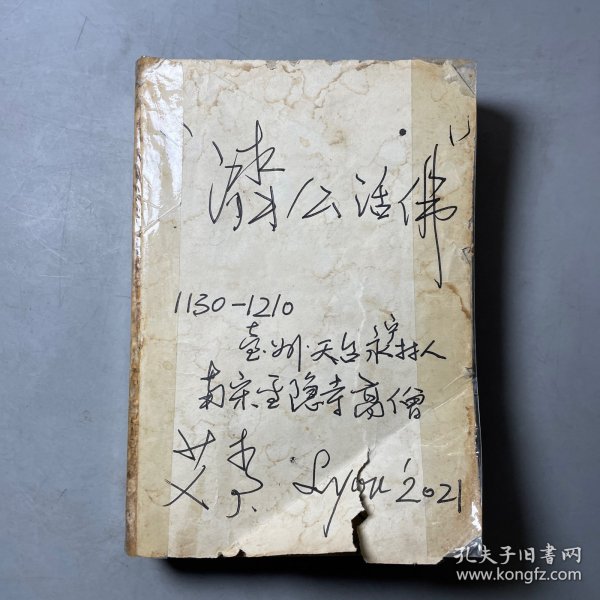 "济公活佛"
1130-1210
台州·天台永宁村人
南宋灵隐寺高僧
艾青·Lyon '2021
孔夫子旧书网
www.kongfz.com